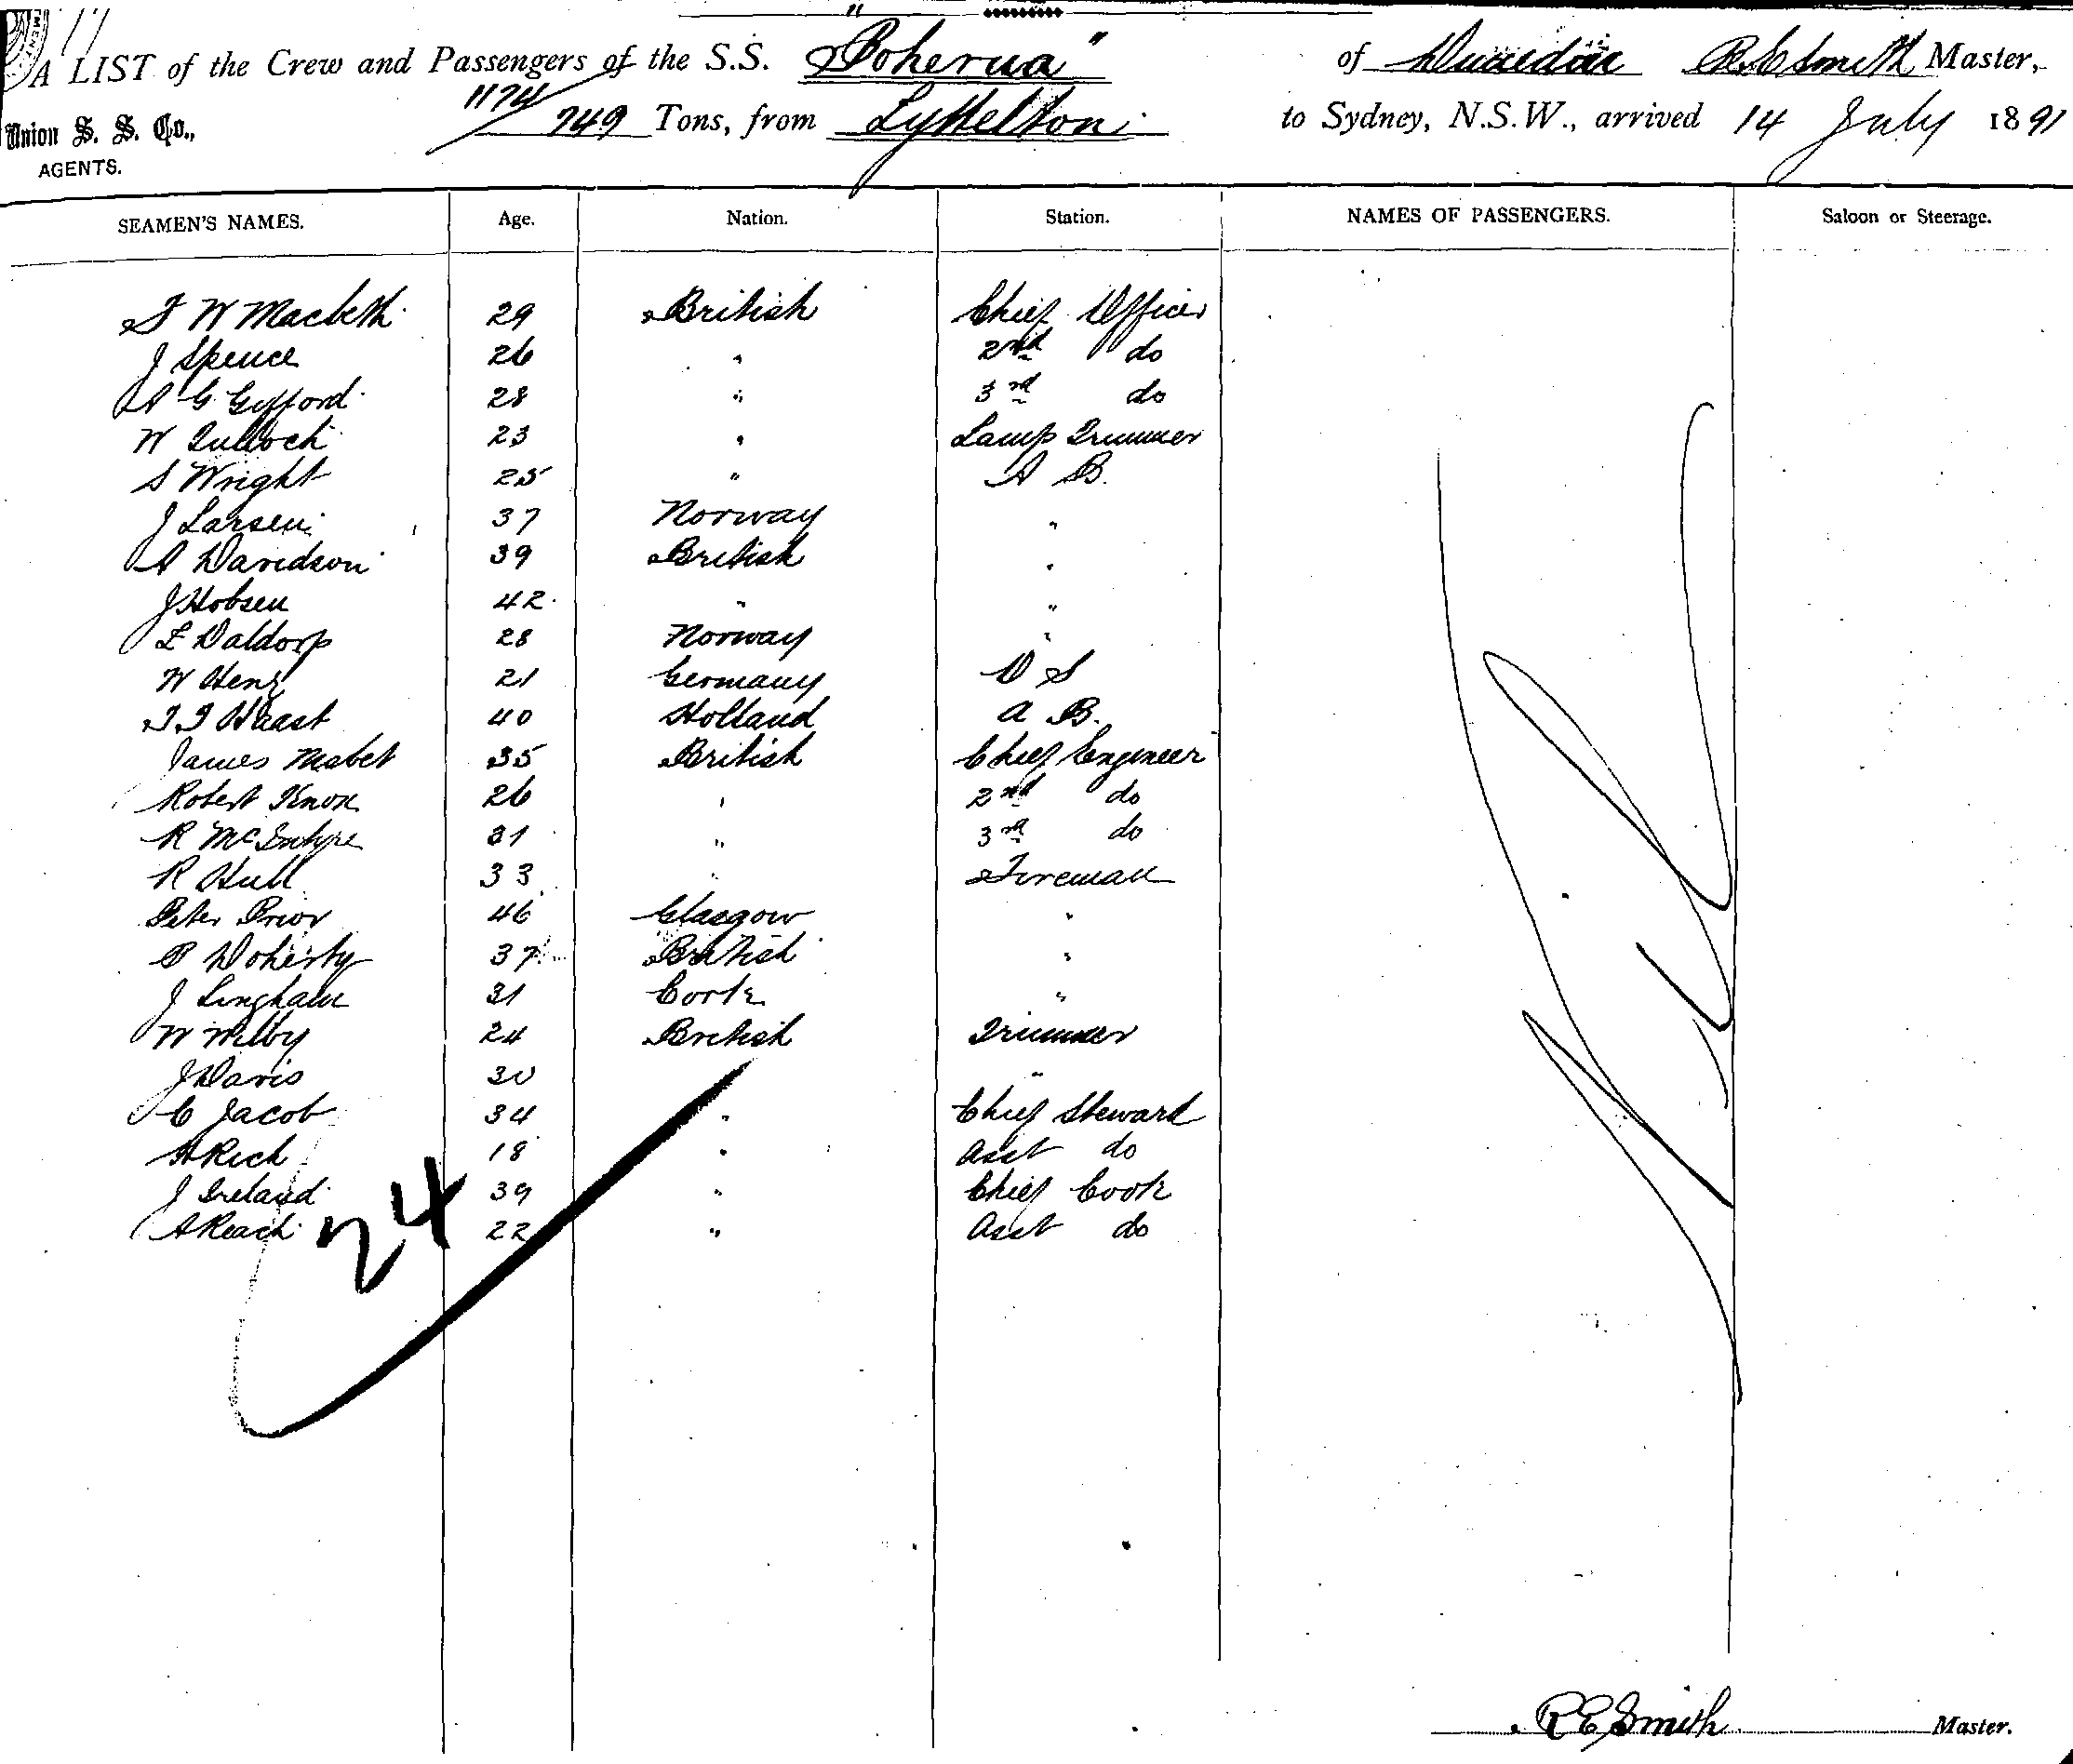 A LIST of the Crew and Passengers of the S.S. "Poherua" of Dunedin R E Smith Master,
1174/749 Tons, from Lyttelton to Sydney, N.S.W., arrived 14 July 1891
Union S. S. Co.,
AGENTS.
SEAMEN'S NAMES. Age. Nation. Station. NAMES OF PASSENGERS. Saloon or Steerage.
F W Macbeth 29 British Chief Officer
J Spence 26 " 2nd do
A G Gifford 28 " 3rd do
W Tulloch 23 " Lamp Trimmer
S Wright 25 " A B.
J Larsen 37 Norway "
A Davidson 39 British "
J Hobsen 42 " "
L Daldorp 28 Norway "
W Henz 21 Germany O S
40 Holland A B.
James Nisbet 35 British Chief Engineer
Robert Knox 26 " 2nd do
R McIntyre 31 " 3rd do
R Hull 33 " Fireman
Peter Prior 46 Glasgow "
P Doherty 37 British "
J Lingham 31 Cork "
W Wilby 24 British Trimmer
J Davis 30 "
C Jacob 34 " Chief Steward
H Rich 18 " Asst do
J Ireland 39 " Chief Cook
A Reach 22 " Asst do
24
R E Smith Master.